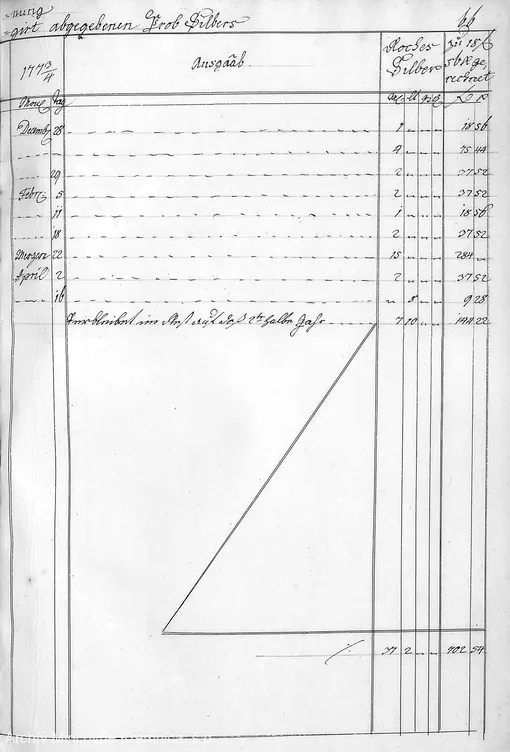 =nung
=girt abgegebenen Prob Silbers 66
1773/4 Ausgaab Roches Silber zu 18 f 56 x gerechnet
Monat tag M lt q d f x
Decemb 28 1 18 56
4 75 44
29 2 37 52
Febr 5 2 37 52
11 1 18 56
18 2 37 52
22 15 284
April 2 2 37 52
16 8 9 28
Verbleibet im Rest auf das 2te halbe Jahr 7 10 144 22
37 2 702 54